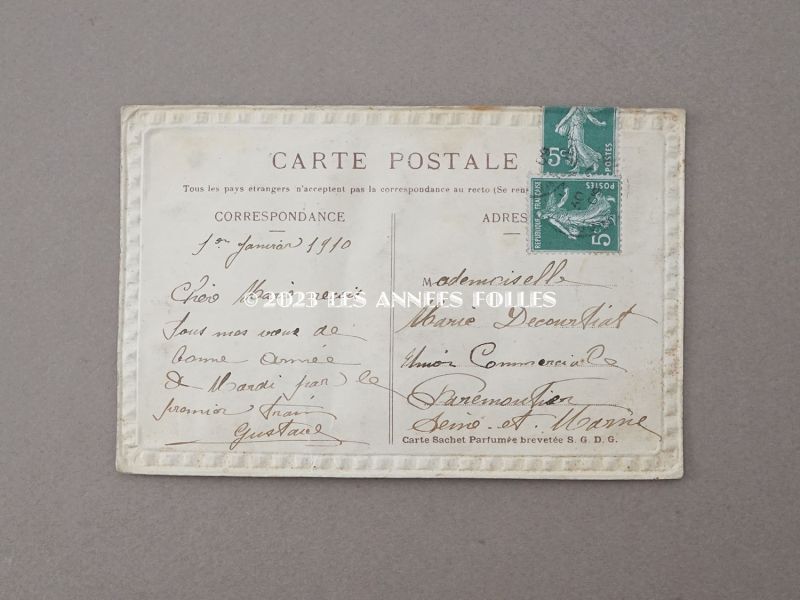 CARTE POSTALE
Tous les pays étrangers n'acceptent pas la correspondance au recto (Se rens
CORRESPONDANCE
ADRES
5c
POSTES
REPUBLIQUE FRANÇAISE
POSTES
5c
1er Janvier 1910
Chère Marie reçois
tous mes vœux de
bonne année
& Mardi par le
premier train
Gustave
Mademoiselle
Marie Decourtiat
Union Commerciale
Faremoutier
Seine-et-Marne
Carte Sachet Parfumée brevetée S. G. D. G.
©2023 LES ANNEES FOLLES